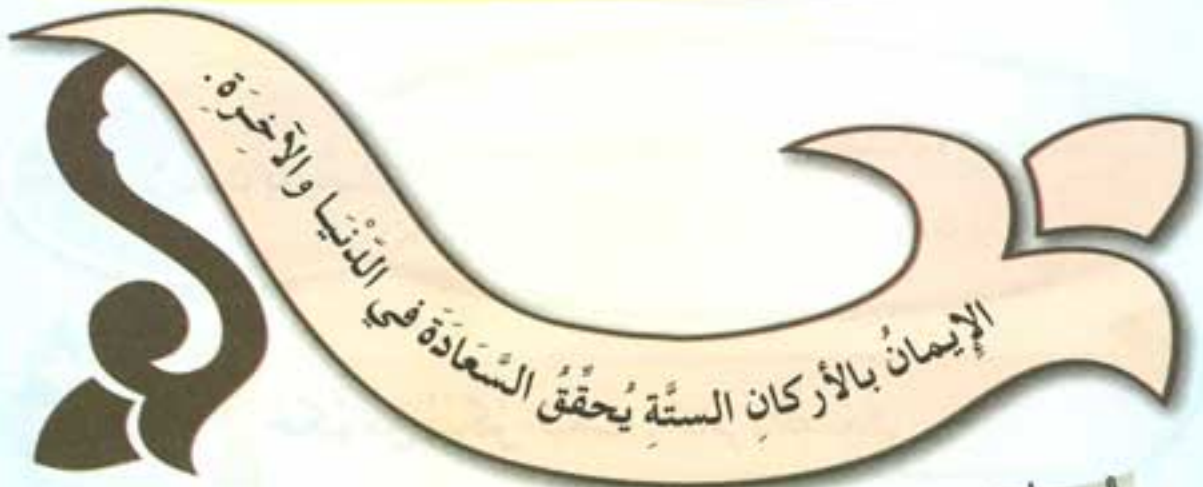 الإِيمانُ بالأركانِ الستَّةِ يُحقِّقُ السَّعَادَةَ في الدّنْيَا والآخِرَةِ.